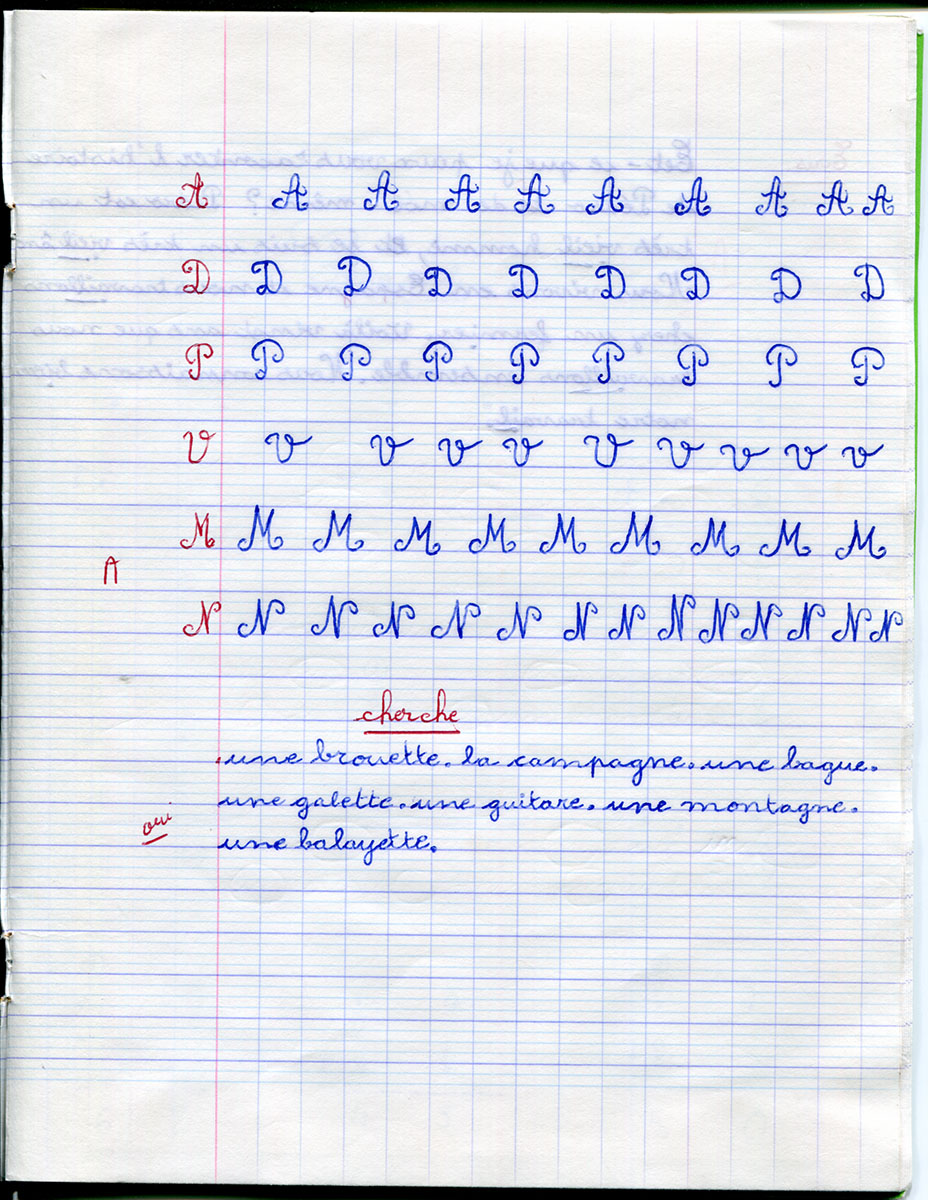 A A A A A A A A A A
D D D D D D D D D
P P P P P P P P P
V V V V V V V V V V
M M M M M M M M M M
A
N N N N N N N N N N N N N N
cherche
une brouette. la campagne. une bague.
une galette. une guitare. une montagne.
oui
une balayette.